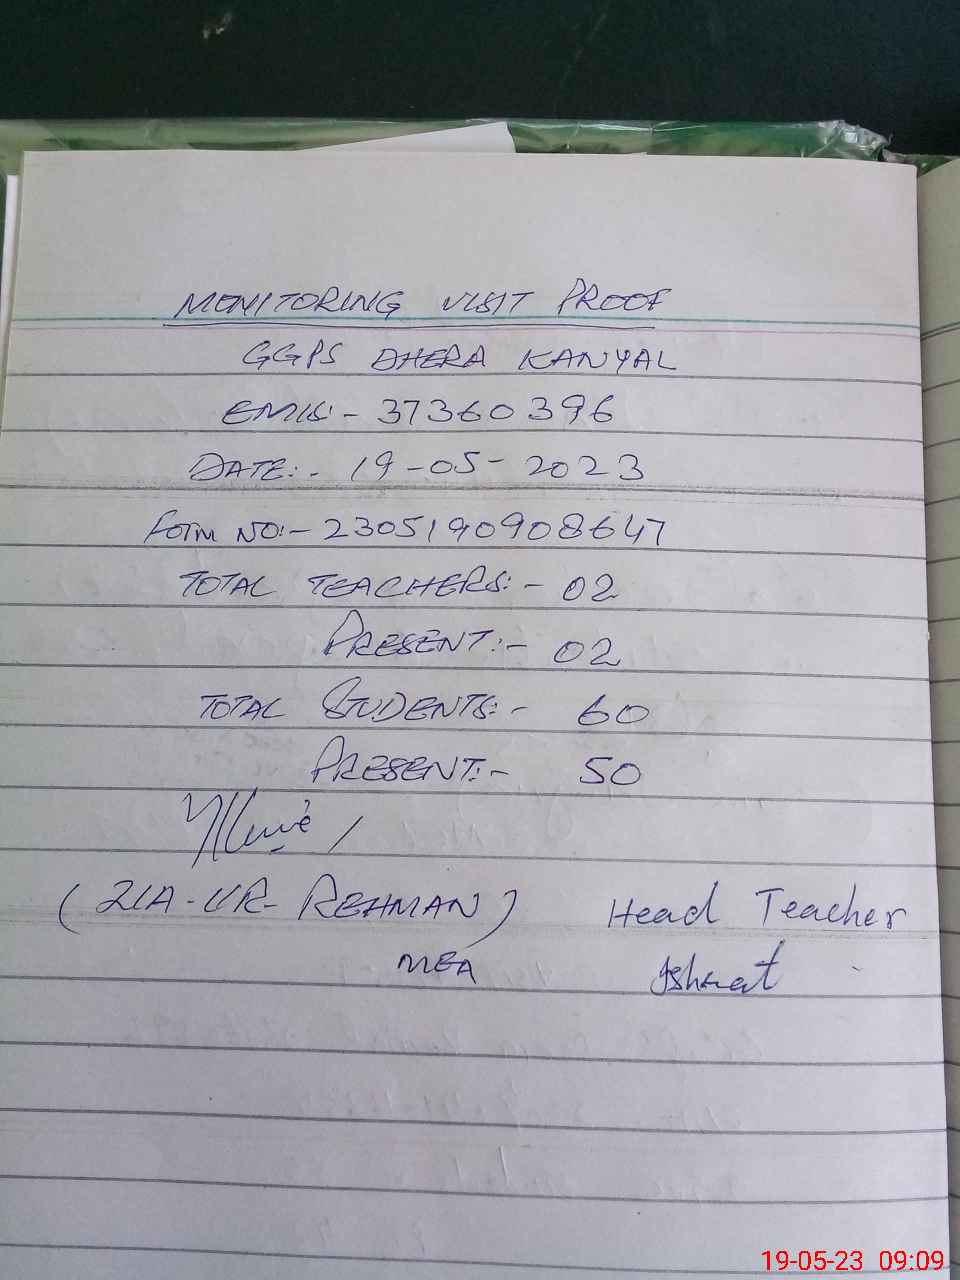 MONITORING VISIT PROOF
GGPS DHERA KANYAL
EMIS:- 37360396
DATE:- 19-05-2023
Form NO:- 2305190908647
TOTAL TEACHERS:- 02
PRESENT:- 02
TOTAL STUDENTS:- 60
PRESENT:- 50
(ZIA-UR-REHMAN)
MEA
Head Teacher
Ishrat
19-05-23 09:09